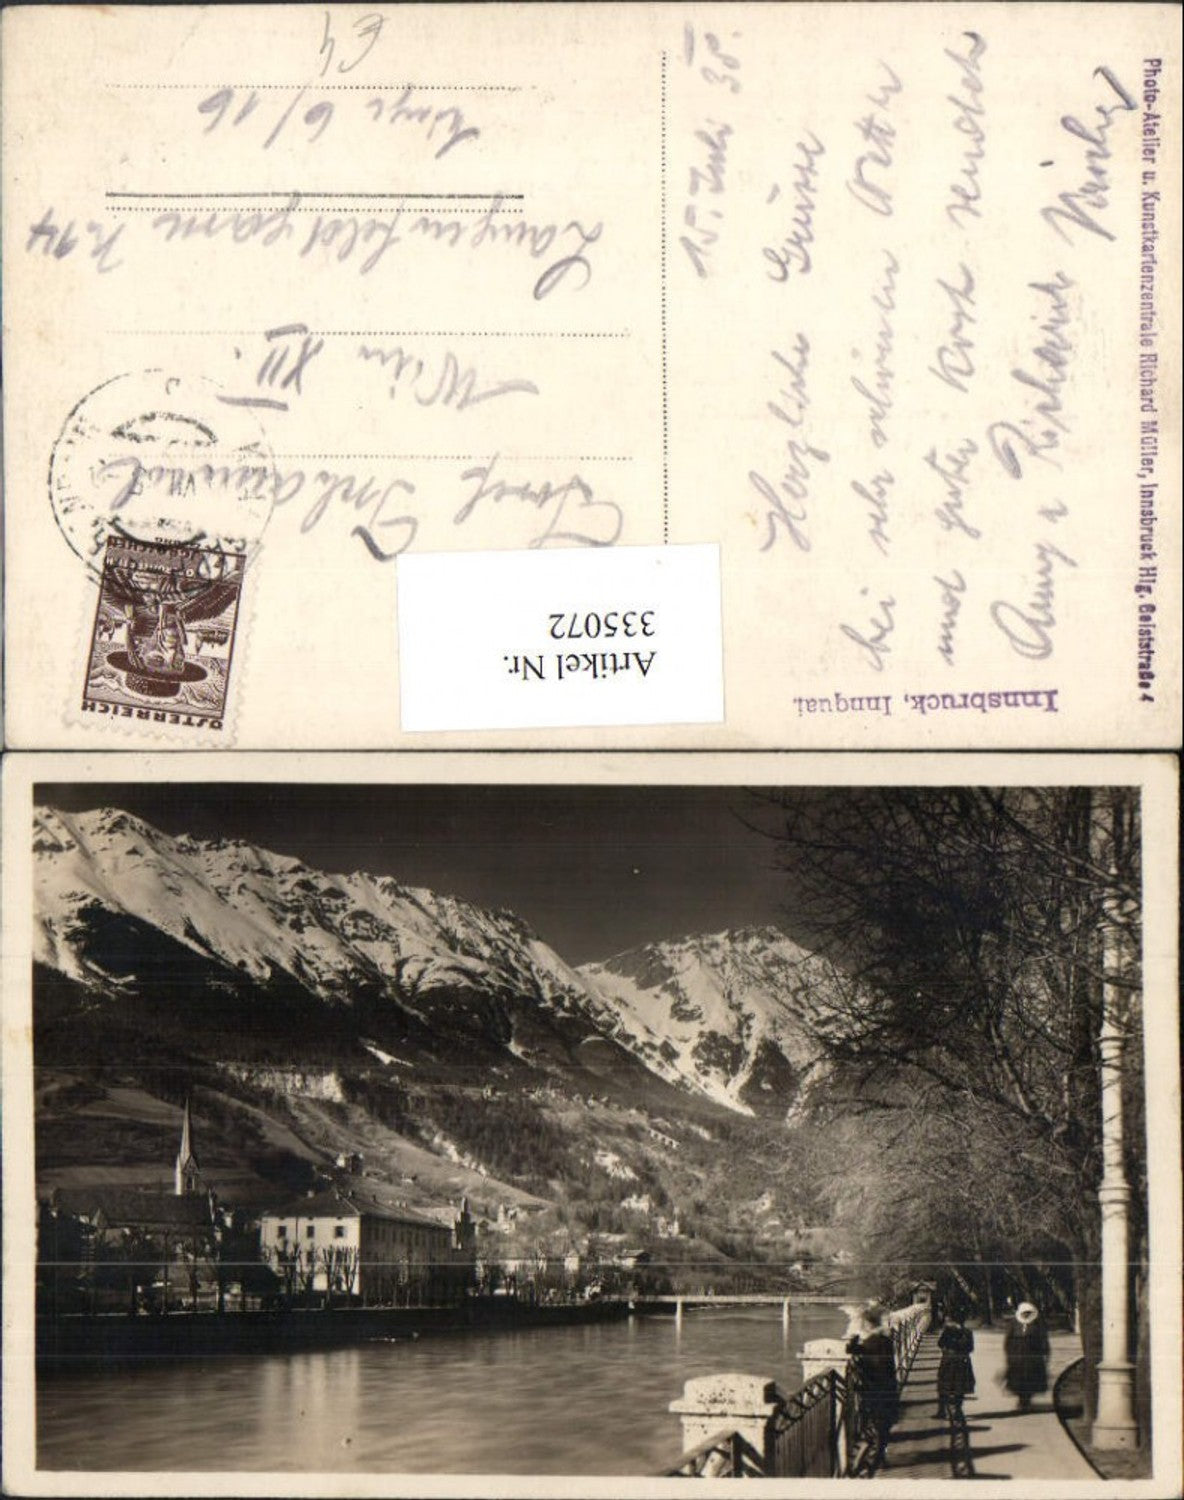 Photo-Atelier u. Kunstkartenzentrale Richard Müller, Innsbruck Hlg. Geiststraße 4
Innsbruck, Innquai.
15. Juli 38.
Herzliche Grüsse
bei sehr schönem Wetter
und guter Kost sendet
Anny
Josef
Wien XII.
Langenfeldgasse
6/16
ÖSTERREICH
Artikel Nr.
335072